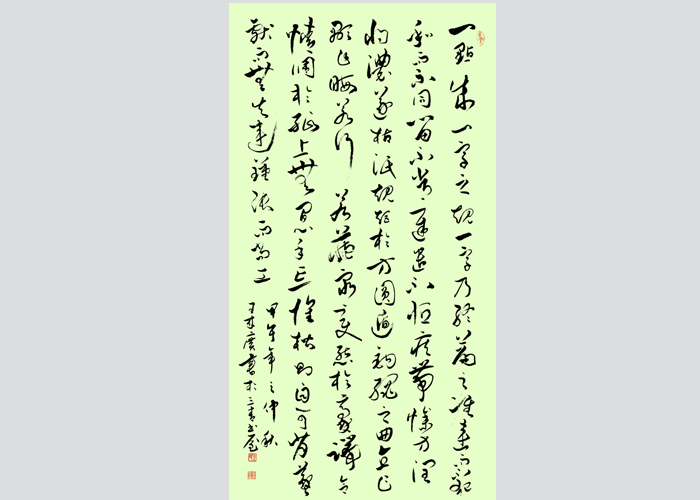 一點成一字之規一字乃終篇之准違而不犯
和而不同留不常遲遣不恒疾帶燥方潤
將濃遂枯泯規矩於方圓遁鉤繩之曲直乍
顯乍晦若行若藏窮變態於毫端合
情調於紙上無間心手忘懷楷則自可背羲
獻而無失違鍾張而尚工
甲午年之仲秋